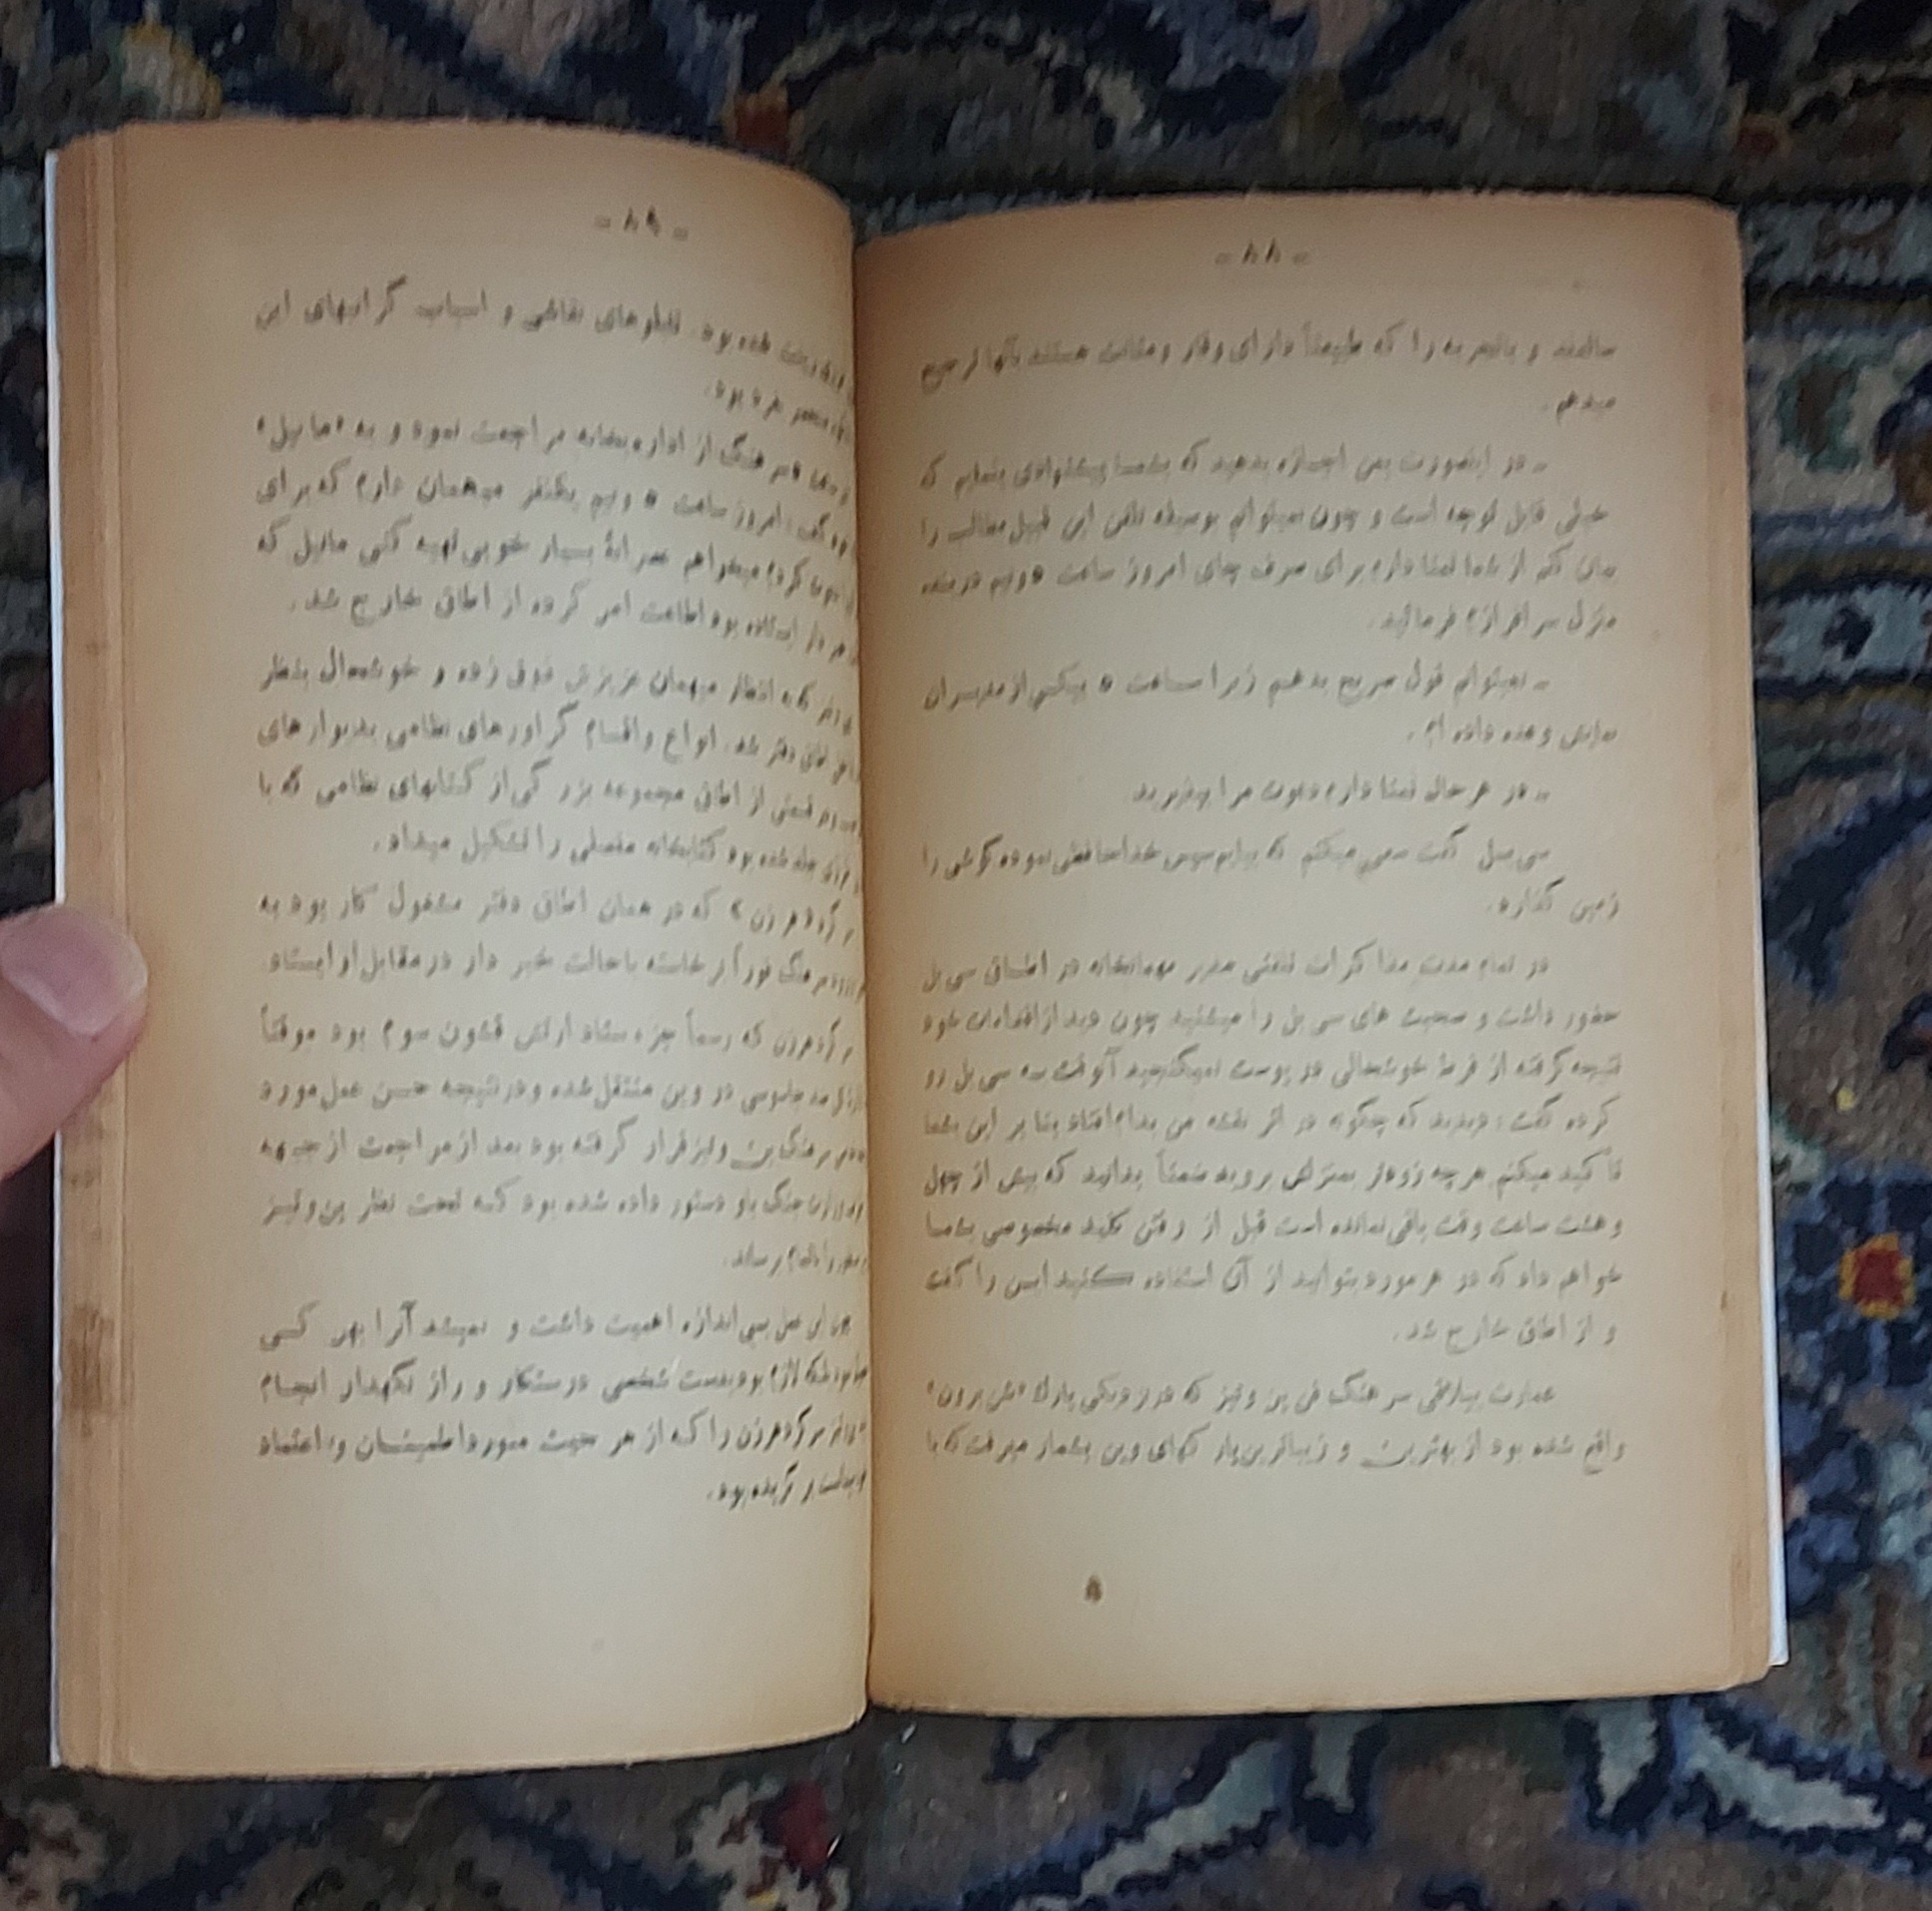 - ۸۸ -
سالمند و باتجربه را که طبیعتاً دارای وقار و متانت هستند بآنها ترجیح
میدهم.
- در اینصورت بمن اجازه بدهید که بشما پیشنهادی بنمایم که
خیلی قابل توجه است و چون نمیتوانم بوسیله تلفن این قبیل مطالب را
بیان کنم از شما تمنا دارم برای صرف چای امروز ساعت ۵ ونیم در بنده
منزل سرافرازم فرمائید.
- نمیتوانم قول صریح بدهم زیرا ساعت ۵ بیکی از مدیران
نمایش وعده داده ام.
- در هر حال تمنا دارم دعوت مرا بپذیرید
سی بل گفت سعی میکنم که بیایم سپس خداحافظی نموده گوشی را
زمین گذارد.
در تمام مدت مذاکرات تلفنی مدیر مهمانخانه در اطاق سی بل
حضور داشت و صحبت های سی بل را میشنید چون دید از اقدامات خود
نتیجه گرفته از فرط خوشحالی در پوست نمیگنجید آنوقت به سی بل رو
کرده گفت: دیدید که چگونه در اثر نقشه من بدام افتاد بنا بر این بشما
تاکید میکنم هر چه زودتر بمنزلش بروید ضمناً بدانید که بیش از چهل
وهشت ساعت وقت باقی نمانده است قبل از رفتن کلید مخصوصی بشما
خواهم داد که در هر مورد بتوانید از آن استفاده کنید این را گفت
و از اطاق خارج شد.
عمارت ییلاقی سرهنگ فن پن ویتز که در نزدیکی پارك «شن برون»
واقع شده بود از بهترین و زیباترین پارکهای وین بشمار میرفت که با
۸
- ۸۹ -
زینت شده بود. تابلوهای نقاشی و اسباب گرانبهای این
منحصر بفرد بود.
سرهنگ از اداره بخانه مراجعت نمود و به «مانیل»
گفت: امروز ساعت ۵ ونیم یکنفر میهمان دارم که برای
کردم میخواهم عصرانهٔ بسیار خوبی تهیه کنی مانیل که
ایستاده بود اطاعت امر کرده از اطاق خارج شد.
که به انتظار میهمان عزیزش ذوق زده و خوشحال بنظر
دفتر شد. انواع واقسام گراورهای نظامی بدیوارهای
قسمتی از اطاق مجموعه بزرگی از کتابهای نظامی که با
جلد شده بود کتابخانه مفصلی را تشکیل میداد.
که در همان اطاق دفتر مشغول کار بود به
سرهنگ فوراً برخاسته باحالت خبر دار در مقابل او ایستاد.
که رسماً جزء ستاد ارتش قشون سوم بود موقتاً
جاسوسی در وین منتقل شده و در نتیجه حسن عمل مورد
سرهنگ پن ویتز قرار گرفته بود بعد از مراجعت از جبهه
جنگ باو دستور داده شده بود که تحت نظر پن ویتز
برساند.
این عمل بی اندازه اهمیت داشت و نمیشد آنرا بهر کسی
بلکه لازم بود بدست شخصی درستکار و رازنگهدار انجام
را که از هر حیث مورد اطمینان و اعتماد
برگزیده بود.